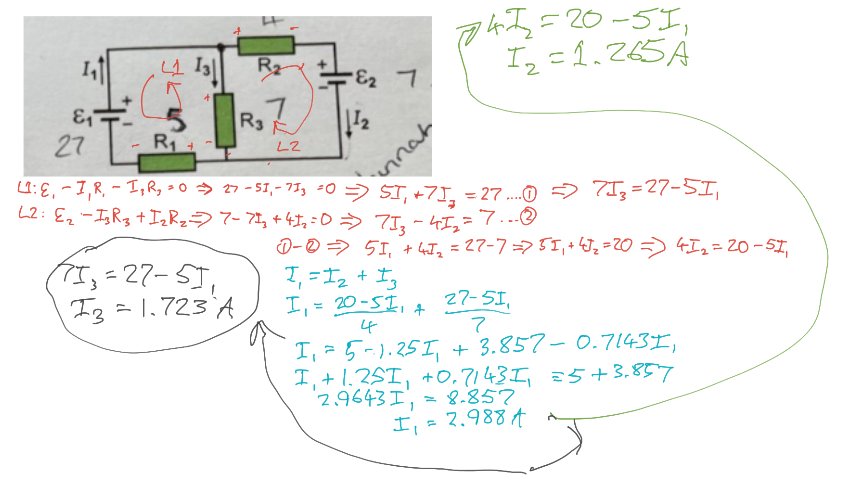 4I₂ = 20 - 5I₁
I₂ = 1.265 A
4
I₁
L1
I₃
R₂
ε₂
7
ε₁
5
7
R₃
I₂
27
R₁
L2
L1: ε₁ - I₁R₁ - I₃R₃ = 0 ⇒ 27 - 5I₁ - 7I₃ = 0 ⇒ 5I₁ + 7I₃ = 27 ....① ⇒ 7I₃ = 27 - 5I₁
L2: ε₂ - I₃R₃ + I₂R₂ ⇒ 7 - 7I₃ + 4I₂ = 0 ⇒ 7I₃ - 4I₂ = 7 ...②
① - ② ⇒ 5I₁ + 4I₂ = 27 - 7 ⇒ 5I₁ + 4I₂ = 20 ⇒ 4I₂ = 20 - 5I₁
7I₃ = 27 - 5I₁
I₃ = 1.723 A
I₁ = I₂ + I₃
I₁ = (20 - 5I₁)/4 + (27 - 5I₁)/7
I₁ = 5 - 1.25I₁ + 3.857 - 0.7143I₁
I₁ + 1.25I₁ + 0.7143I₁ = 5 + 3.857
2.9643I₁ = 8.857
I₁ = 2.988 A